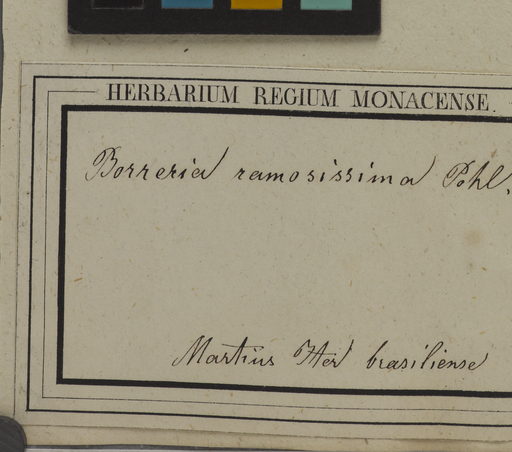 HERBARIUM REGIUM MONACENSE.
Borreria ramosissima Pohl.
Martius Iter brasiliense